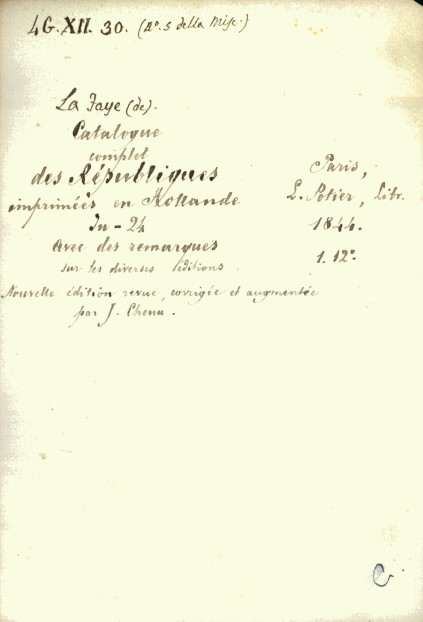 4G.XII. 30. (No. 5 della Misc.)
La Faye (de).
Catalogue
complet
des Républiques
imprimées en Hollande
In - 24
Avec des remarques
sur les diverses éditions.
Nouvelle édition revue, corrigée et augmentée
par J. Chenu.
Paris,
L. Potier, Libr.
1844.
1. 12°.